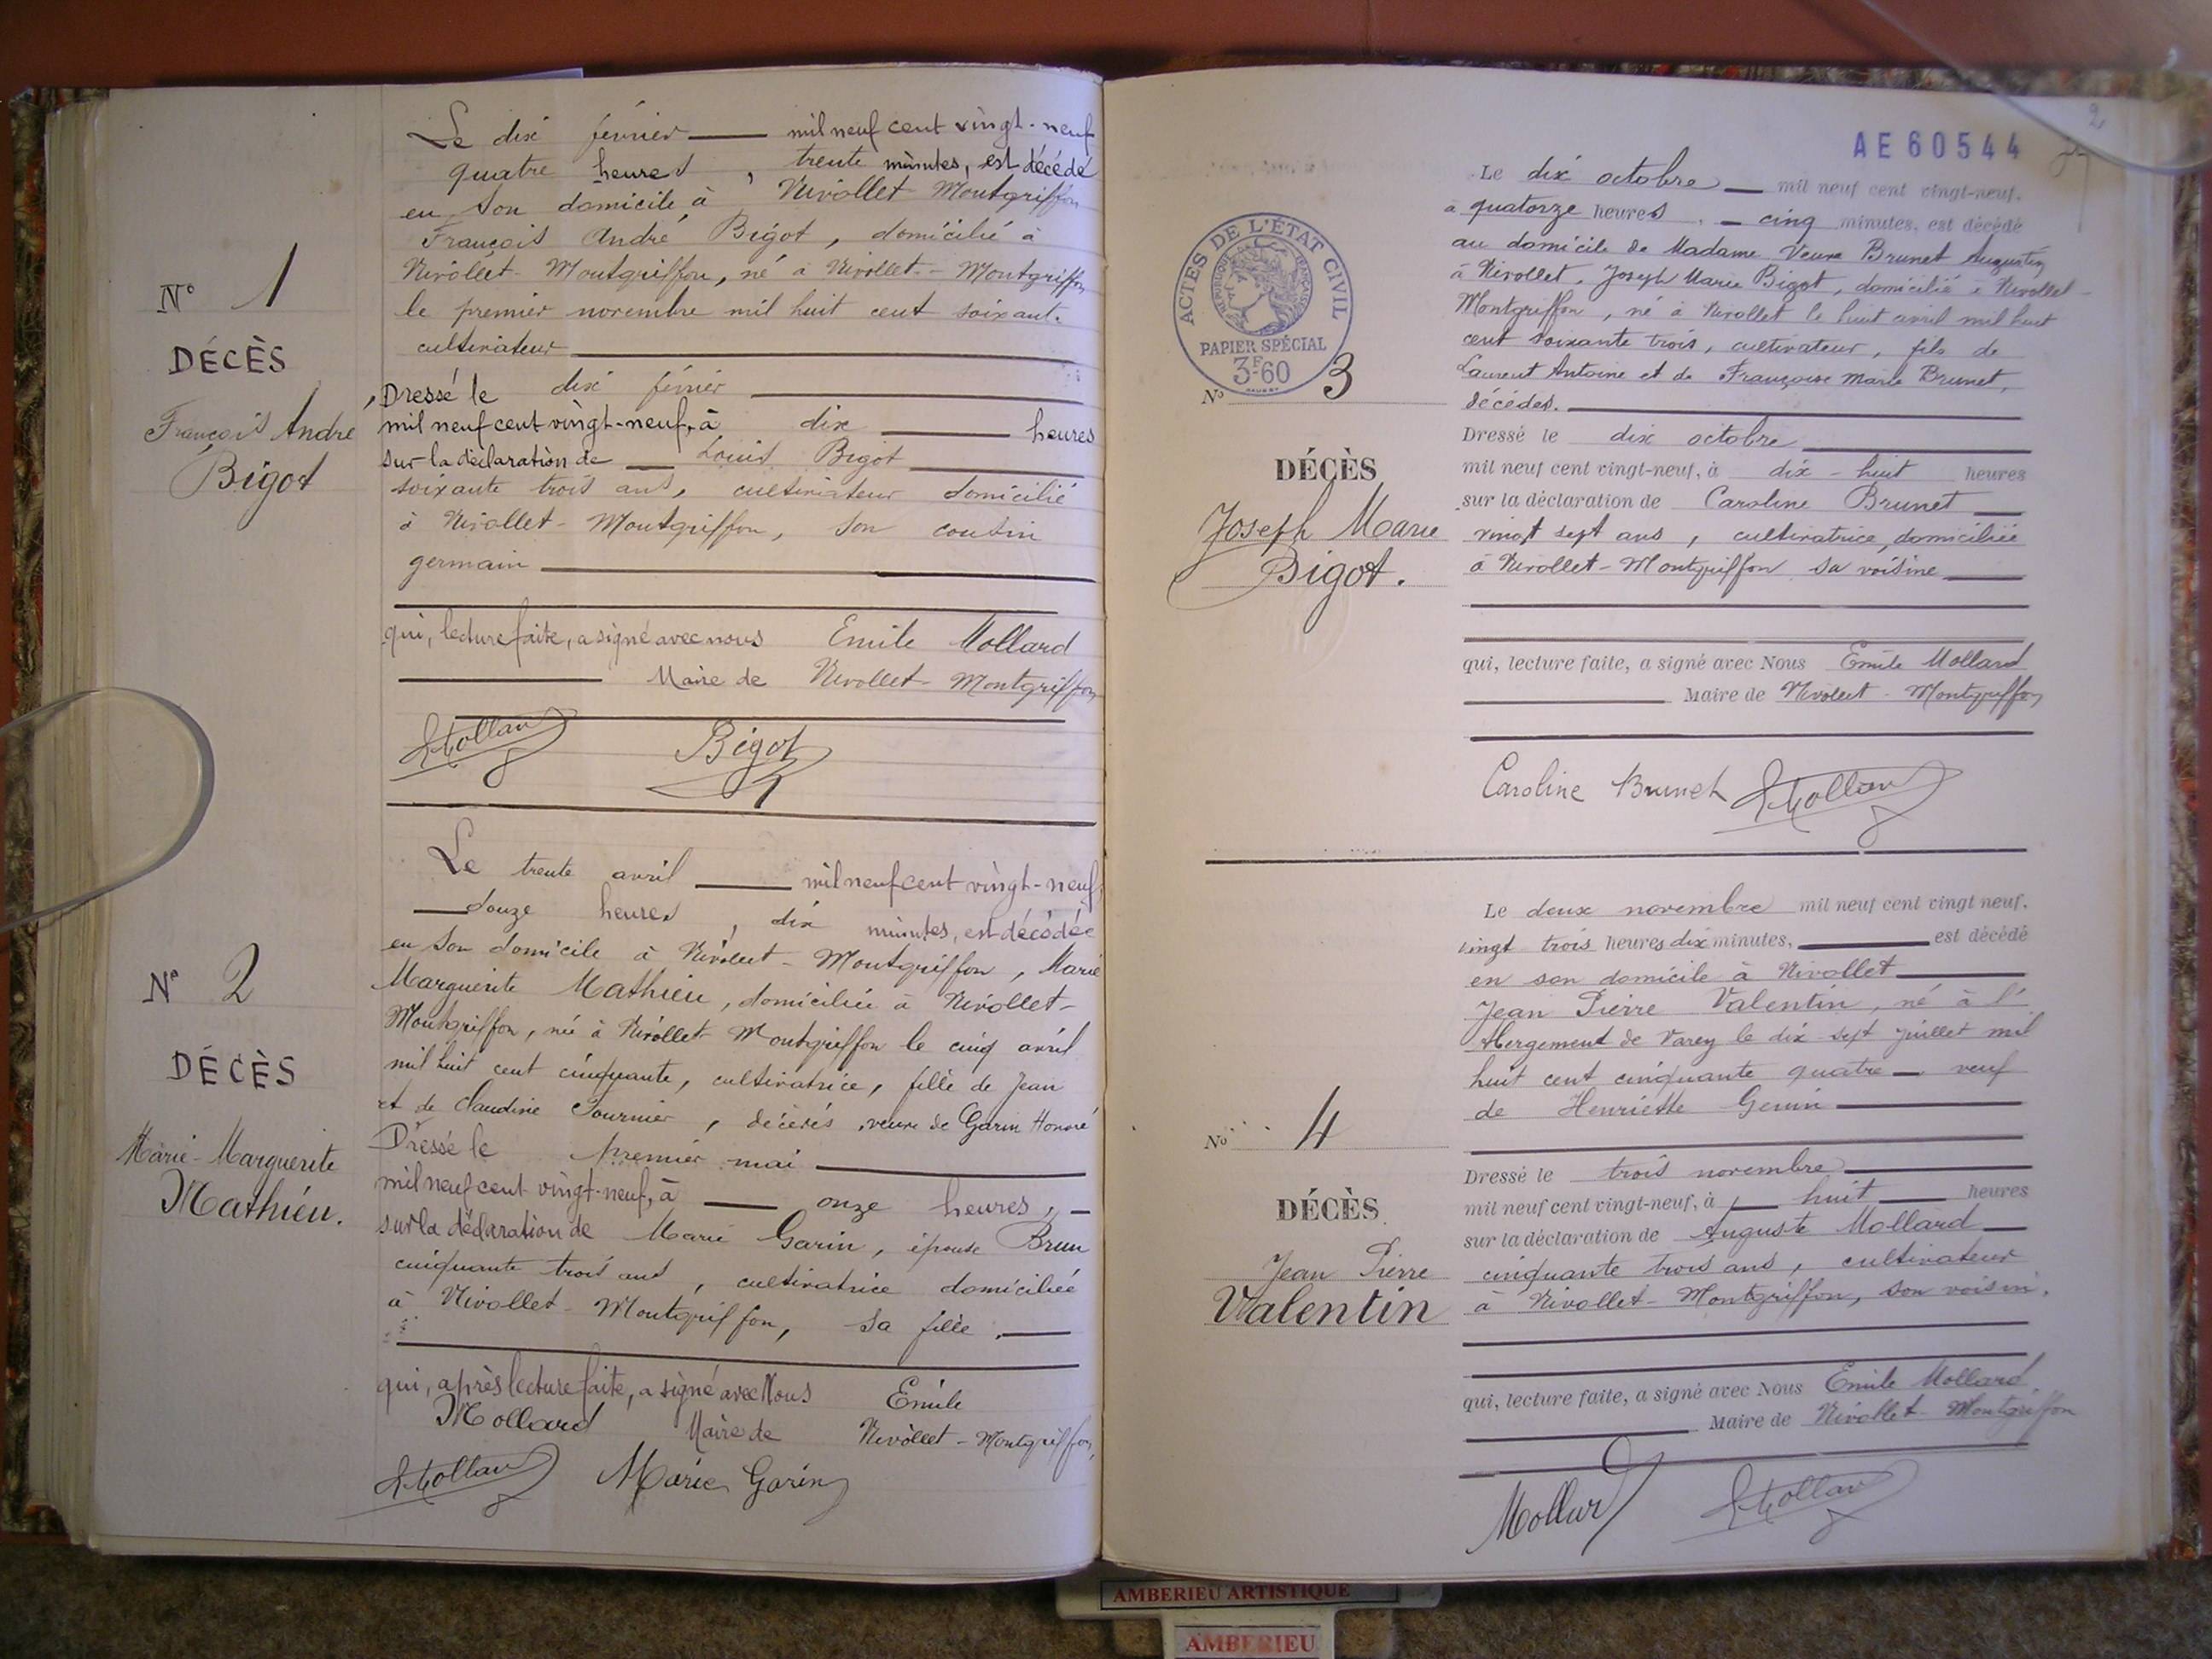 Le dix février mil neuf cent vingt-neuf
quatre heures, trente minutes, est décédé
en son domicile à Nivollet Montgriffon
François André Bigot, domicilié à
Nivollet-Montgriffon, né à Nivollet-Montgriffon
le premier novembre mil huit cent soixante
cultivateur
N° 1
DÉCÈS
François André
Bigot
Dressé le dix février
mil neuf cent vingt-neuf, à dix heures
sur la déclaration de Louis Bigot
soixante trois ans, cultivateur domicilié
à Nivollet-Montgriffon, son cousin
germain
qui, lecture faite, a signé avec nous Emile Mollard
Maire de Nivollet-Montgriffon
EMollard Bigot
Le trente avril mil neuf cent vingt-neuf
douze heures, dix minutes, est décédée
en son domicile à Nivollet-Montgriffon, Marie
Marguerite Mathieu, domiciliée à Nivollet-
Montgriffon, née à Nivollet-Montgriffon le cinq avril
mil huit cent cinquante, cultivatrice, fille de Jean
et de Claudine Fournier, décédés, veuve de Garin Honoré
N° 2
DÉCÈS
Marie-Marguerite
Mathieu.
Dressé le premier mai
mil neuf cent vingt-neuf, à onze heures,
sur la déclaration de Marie Garin, épouse Brun
cinquante trois ans, cultivatrice domiciliée
à Nivollet-Montgriffon, sa fille.
qui, après lecture faite, a signé avec Nous Emile
Mollard Maire de Nivollet-Montgriffon,
EMollard Marie Garin
2
AE 60544
Le dix octobre mil neuf cent vingt-neuf,
à quatorze heures cinq minutes, est décédé
au domicile de Madame Veuve Brunet Augustin
à Nivollet, Joseph Marie Bigot, domicilié à Nivollet-
Montgriffon, né à Nivollet le huit avril mil huit
cent soixante trois, cultivateur, fils de
Laurent Antoine et de Françoise Marie Brunet,
décédés.
ACTES DE L'ÉTAT CIVIL
RÉPUBLIQUE FRANÇAISE
PAPIER SPÉCIAL
3F60
N° 3
DÉCÈS
Joseph Marie
Bigot.
Dressé le dix octobre
mil neuf cent vingt-neuf, à dix-huit heures
sur la déclaration de Caroline Brunet
vingt sept ans, cultivatrice, domiciliée
à Nivollet-Montgriffon sa voisine
qui, lecture faite, a signé avec Nous Emile Mollard
Maire de Nivollet-Montgriffon
Caroline Brunet EMollard
Le deux novembre mil neuf cent vingt neuf.
vingt trois heures dix minutes, est décédé
en son domicile à Nivollet
Jean Pierre Valentin, né à l'
Abergement de Varey le dix-sept juillet mil
huit cent cinquante quatre veuf
de Henriette Genin
N° 4
DÉCÈS
Jean Pierre
Valentin
Dressé le trois novembre
mil neuf cent vingt-neuf, à huit heures
sur la déclaration de Auguste Mollard
cinquante trois ans, cultivateur
à Nivollet-Montgriffon, son voisin.
qui, lecture faite, a signé avec Nous Emile Mollard
Maire de Nivollet-Montgriffon
Mollard EMollard
AMBERIEU ARTISTIQUE
AMBERIEU